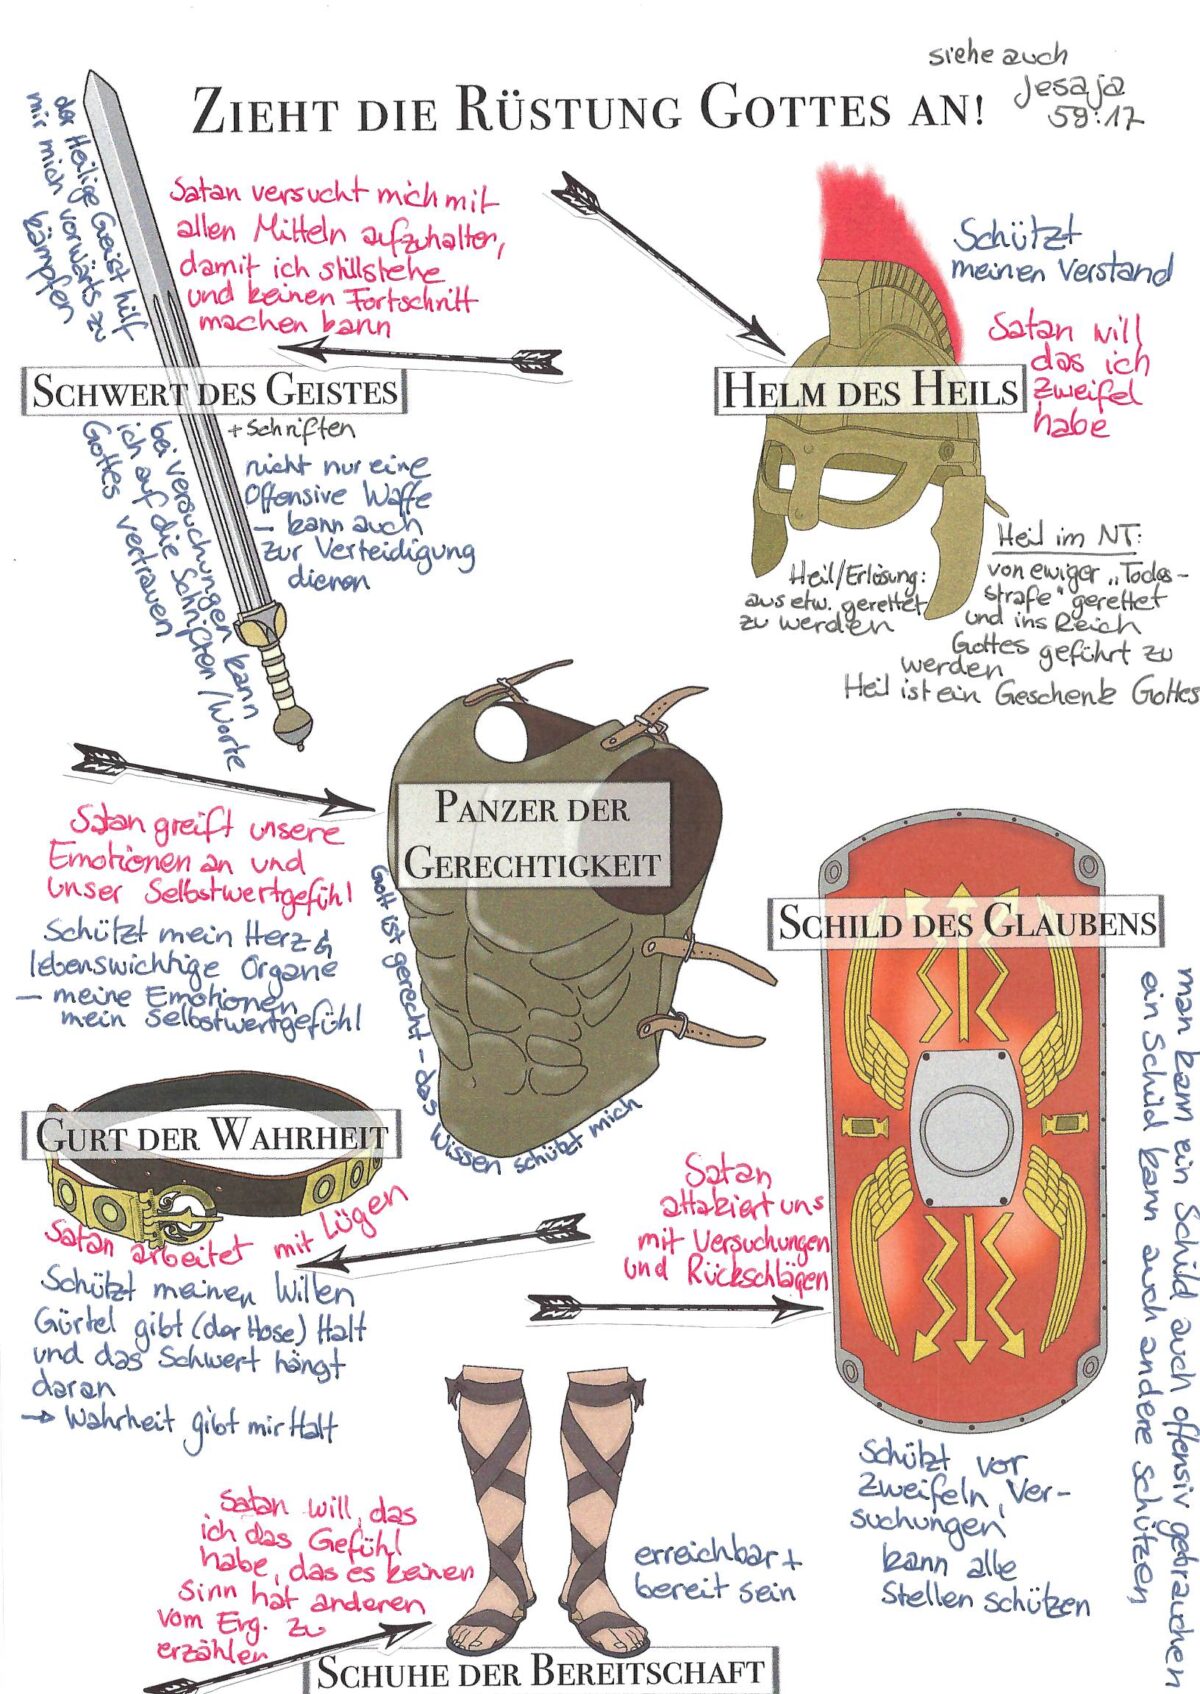 ZIEHT DIE RÜSTUNG GOTTES AN!
siehe auch
Jesaja
59:17
der Heilige Geist hilft
mir mich vorwärts zu
kämpfen
Satan versucht mich mit
allen Mitteln aufzuhalten,
damit ich stillstehe
und keinen Fortschritt
machen kann
SCHWERT DES GEISTES
+ Schriften
nicht nur eine
Offensive Waffe
– kann auch
zur Verteidigung
dienen
bei Versuchungen kann
ich auf die Schriften/Worte
Gottes vertrauen
Schützt
meinen Verstand
Satan will
das ich
zweifel
habe
HELM DES HEILS
Heil/Erlösung:
aus etw. gerettet
zu werden
Heil im NT:
von ewiger „Todes-
strafe" gerettet
und ins Reich
Gottes geführt zu
werden
Heil ist ein Geschenk Gottes
PANZER DER
GERECHTIGKEIT
Satan greift unsere
Emotionen an und
unser Selbstwertgefühl
Schützt mein Herz &
lebenswichtige Organe
– meine Emotionen
mein Selbstwertgefühl
Gott ist gerecht – das Wissen schützt mich
SCHILD DES GLAUBENS
man kann ein Schild auch offensiv gebrauchen
ein Schild kann auch andere schützen
Satan
attakiert uns
mit Versuchungen
und Rückschlägen
Schützt vor
Zweifeln, Ver-
suchungen
kann alle
Stellen schützen
GURT DER WAHRHEIT
Satan arbeitet mit Lügen
Schützt meinen Willen
Gürtel gibt (der Hose) Halt
und das Schwert hängt
daran
→ Wahrheit gibt mir Halt
Satan will, das
ich das Gefühl
habe, das es keinen
Sinn hat anderen
vom Evg. zu
erzählen
erreichbar +
bereit sein
SCHUHE DER BEREITSCHAFT